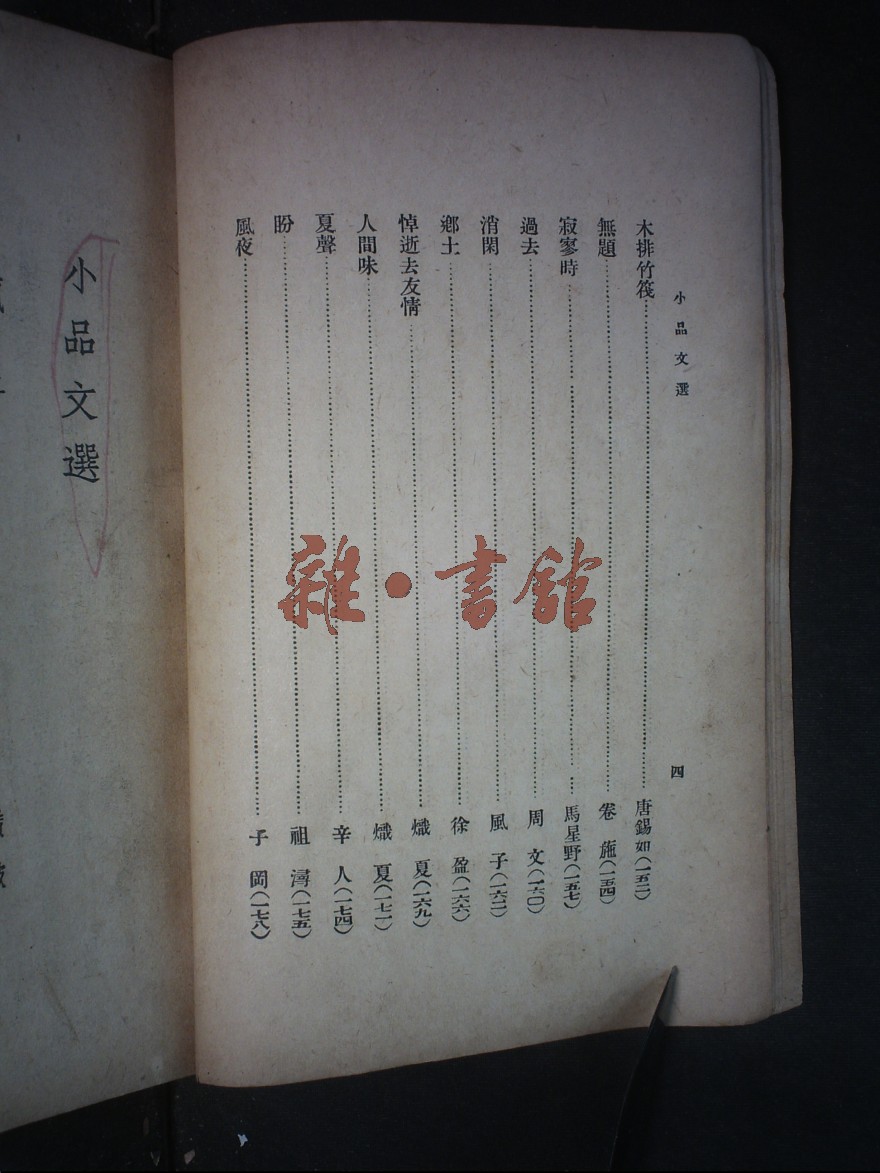 小品文選
四
木排竹筏……唐錫如(一五二)
無題……卷施(一五四)
寂寥時……馬星野(一五七)
過去……周文(一六〇)
消閑……風子(一六二)
鄉土……徐盈(一六六)
悼逝去友情……熾夏(一六九)
人間味……熾夏(一七一)
夏聲……辛人(一七四)
盼……祖濤(一七五)
風夜……子岡(一七八)
雜·書館
小品文選